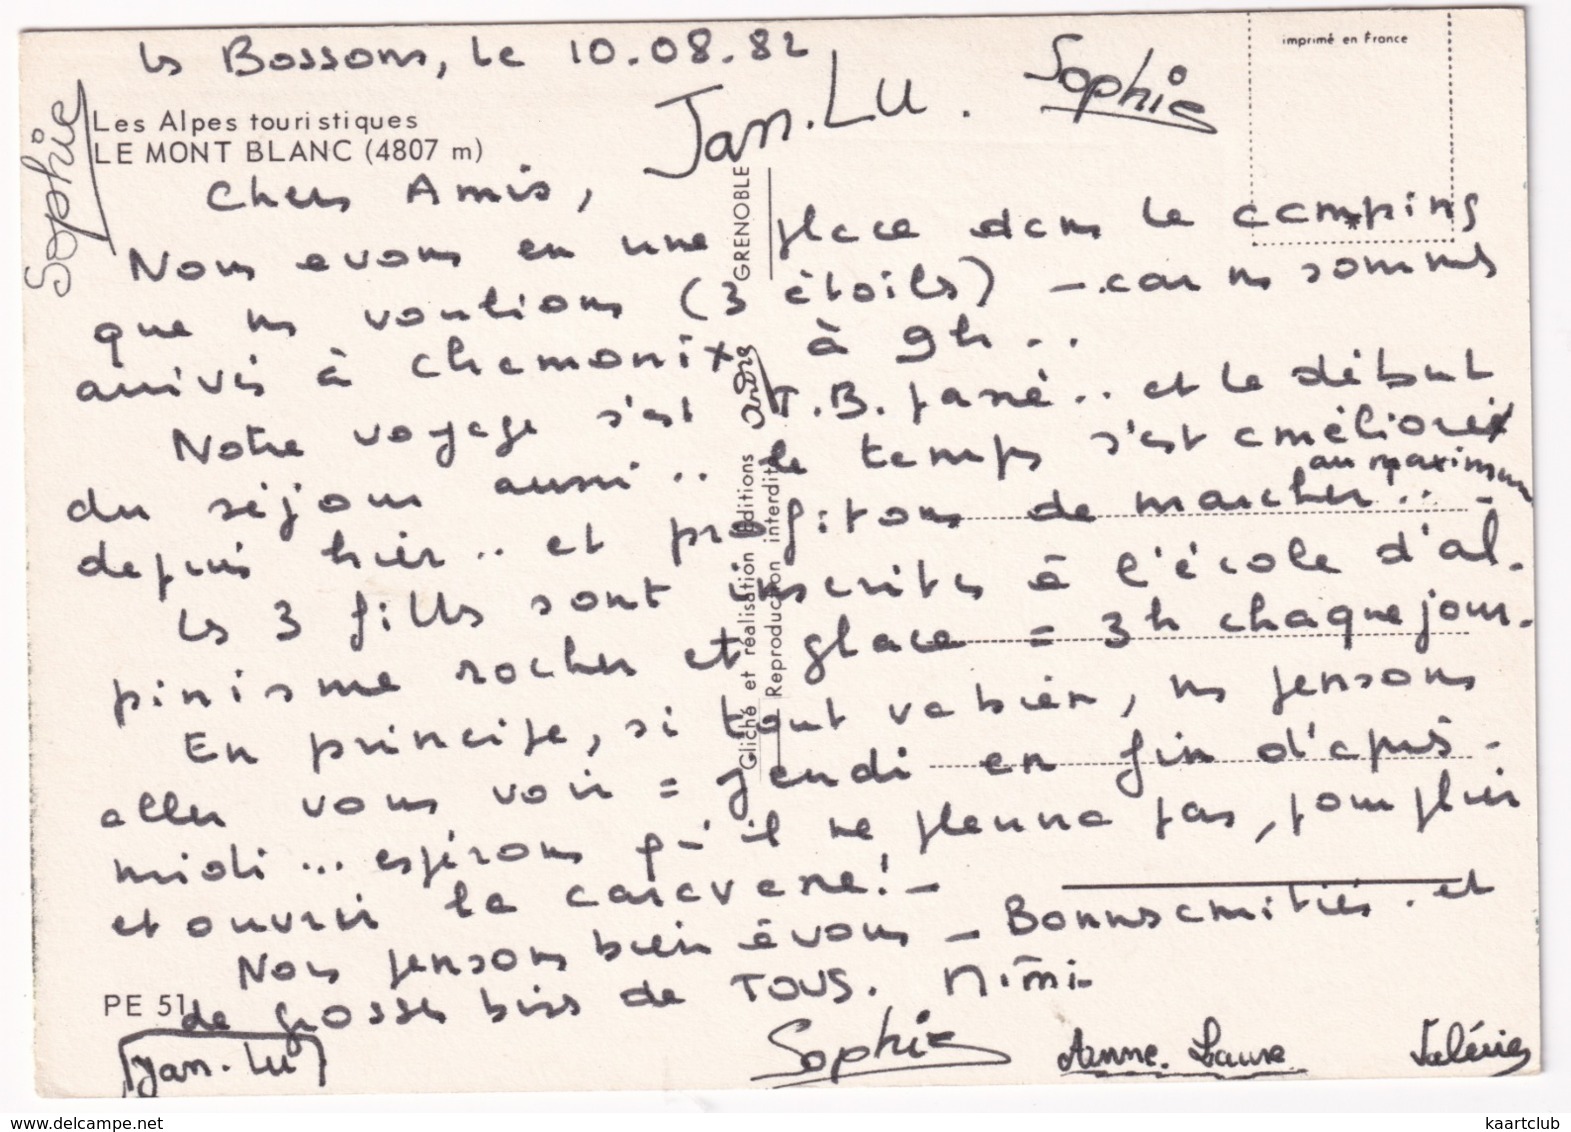 les Bossons, le 10.08.82
imprimé en France
Sophie
Jan.Lu. Sophie
Les Alpes touristiques
LE MONT BLANC (4807 m)
Chers Amis,
Nous avons eu une place dans le camping
que ns voulions (3 étoiles) - car ns sommes
arrivés à Chamonix à 9h..
Notre voyage s'est T.B. passé.. et le début
du séjour aussi.. le temps s'est amélioré
depuis hier.. et profitons de marcher au maximum..-
les 3 filles sont inscrites à l'école d'al-
pinisme rocher et glace = 3h chaque jour.
En principe, si tout va bien, ns pensons
aller vous voir = jeudi en fin d'après-
midi... espérons qu'il ne pleuve pas, pour plier
et ouvrir la caravane! -
Nous pensons bien à vous - Bonnes amitiés. et
de grosses bises de TOUS. Mimi.
PE 51
Jan.Lu Sophie Anne.Laure Valérie
Cliché et réalisation Editions André GRENOBLE
Reproduction interdite
kaartclub
www.delcampe.net